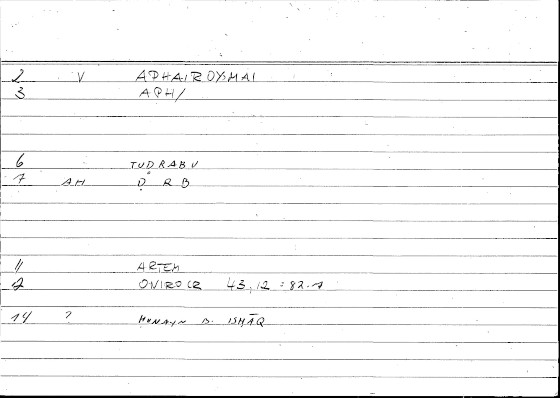 2 V APHAIROYMAI
3 APH/
6 TUDRABU
7 AH Ḍ R B
11 ARTEM
12 ONIROCR 43,12 = 82.1
14 ? HUNAYN B. ISHĀQ